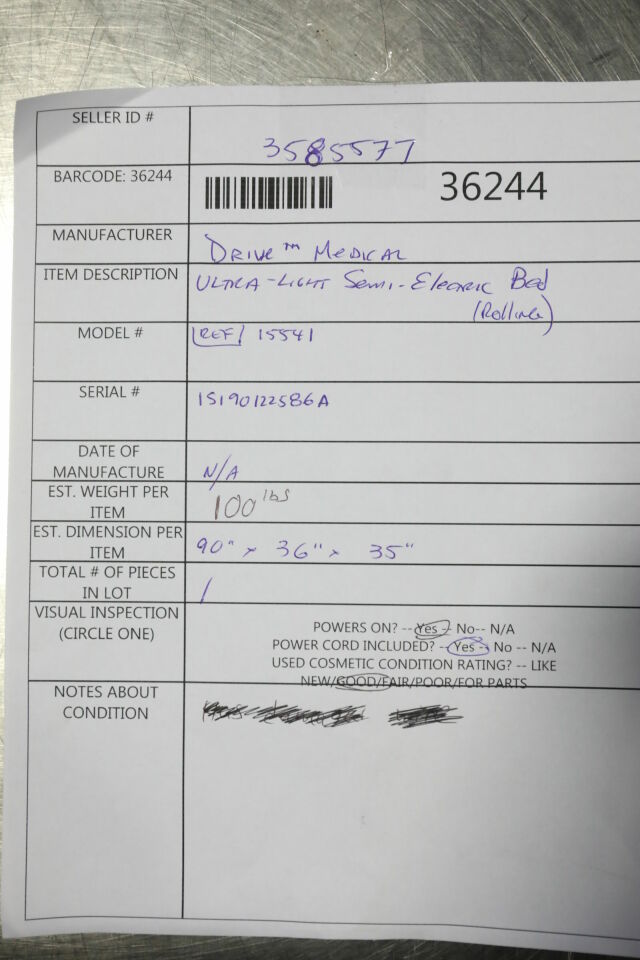 SELLER ID #
3585577
BARCODE: 36244
36244
MANUFACTURER
DRIVE™ MEDICAL
ITEM DESCRIPTION
ULTRA-LIGHT SEMI-ELECTRIC Bed
(Rolling)
MODEL #
REF 15541
SERIAL #
1S190122586A
DATE OF
MANUFACTURE
N/A
EST. WEIGHT PER
ITEM
100 lbs
EST. DIMENSION PER
ITEM
90" x 36" x 35"
TOTAL # OF PIECES
IN LOT
1
VISUAL INSPECTION
(CIRCLE ONE)
POWERS ON? --Yes -- No-- N/A
POWER CORD INCLUDED? --Yes -- No -- N/A
USED COSMETIC CONDITION RATING? -- LIKE
NEW/GOOD/FAIR/POOR/FOR PARTS
NOTES ABOUT
CONDITION